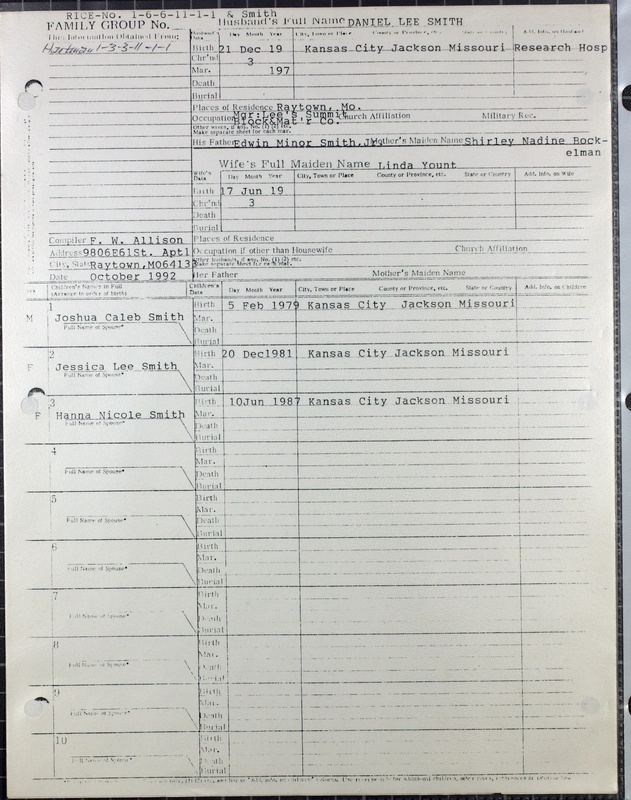 RICE-No. 1-6-6-11-1-1 & Smith
FAMILY GROUP No. Husband's Full Name DANIEL LEE SMITH
This Information Obtained From:
Husband's Data Day Month Year City, Town or Place County or Province, etc. State or Country Add. Info. on Husband
1-3-3-11-1-1
Birth 21 Dec 19 Kansas City Jackson Missouri Research Hosp
Chr'nd 3
Mar. 197
Death
Burial
Places of Residence Raytown, Mo.
Occupation Mgr:Lee's Summit Church Affiliation Military Rec.
Block&Mat'r Co.
Other wives, if any. No. (1) (2) etc.
Make separate sheet for each mar.
His Father Edwin Minor Smith,Jr Mother's Maiden Name Shirley Nadine Bock-
elman
Wife's Full Maiden Name Linda Yount
Wife's Data Day Month Year City, Town or Place County or Province, etc. State or Country Add. Info. on Wife
Birth 17 Jun 19
Chr'nd 3
Death
Burial
Compiler F. W. Allison Places of Residence
Address 9806E61St. Apt1 Occupation if other than Housewife Church Affiliation
City, State Raytown,MO6413 Other husbands, if any. No. (1) (2) etc.
Make separate sheet for each mar.
Date October 1992 Her Father Mother's Maiden Name
Sex Children's Names in Full
(Arrange in order of birth) Children's Data Day Month Year City, Town or Place County or Province, etc. State or Country Add. Info. on Children
1 Birth 5 Feb 1979 Kansas City Jackson Missouri
M Joshua Caleb Smith Mar.
Full Name of Spouse* Death
Burial
2 Birth 20 Dec1981 Kansas City Jackson Missouri
F Jessica Lee Smith Mar.
Full Name of Spouse* Death
Burial
3 Birth 10Jun 1987 Kansas City Jackson Missouri
F Hanna Nicole Smith Mar.
Full Name of Spouse* Death
Burial
4 Birth
Mar.
Full Name of Spouse* Death
Burial
5 Birth
Mar.
Full Name of Spouse* Death
Burial
6 Birth
Mar.
Full Name of Spouse* Death
Burial
7 Birth
Mar.
Full Name of Spouse* Death
Burial
8 Birth
Mar.
Full Name of Spouse* Death
Burial
9 Birth
Mar.
Full Name of Spouse* Death
Burial
10 Birth
Mar.
Full Name of Spouse* Death
Burial